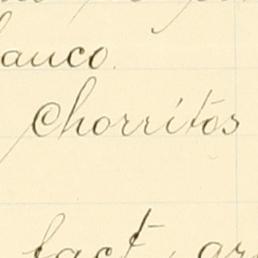 auco.
Chorritos
fact